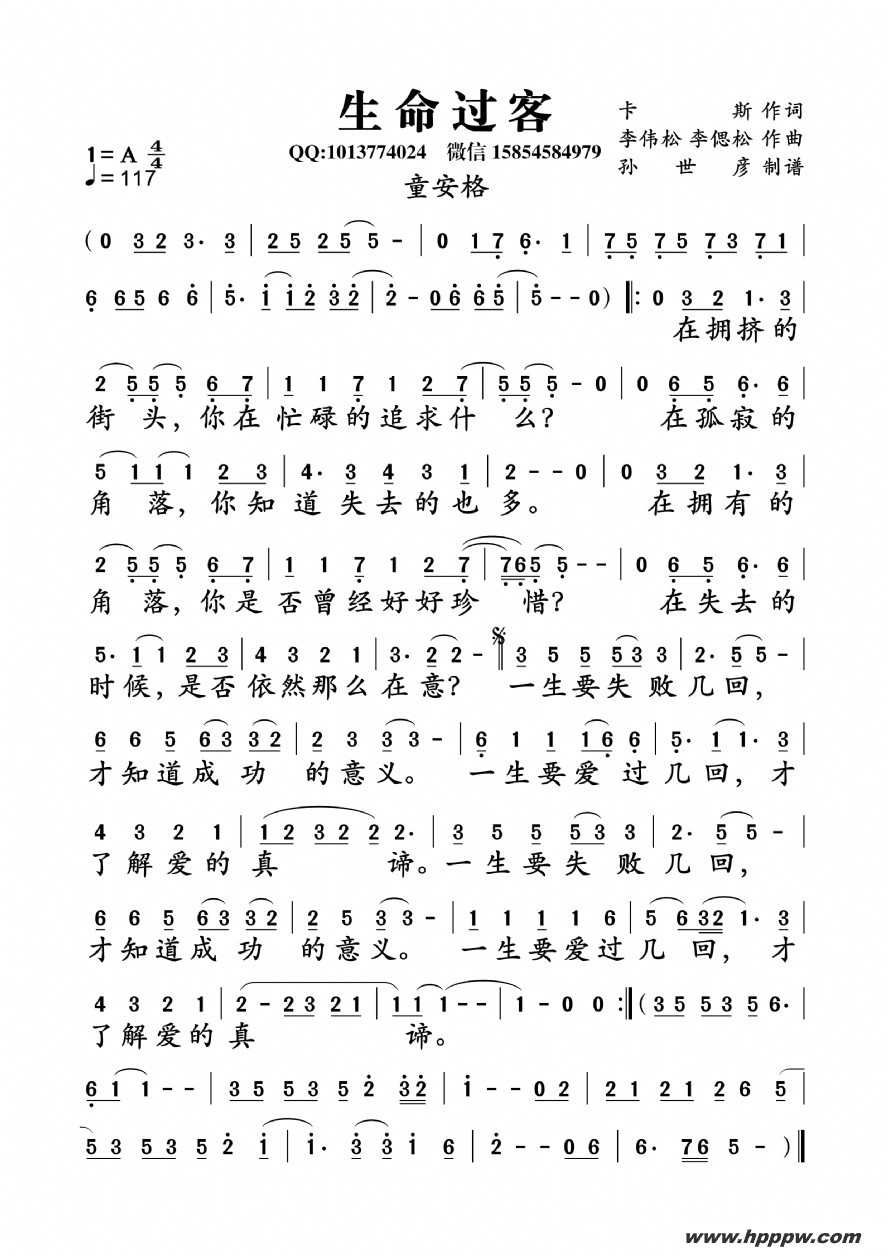 生命过客
卡 斯 作词
1=A 4/4
QQ:1013774024 微信 15854584979
李伟松 李偲松 作曲
♩=117
童安格
孙 世 彦 制谱
(0 3 2 3· 3 | 2 5 2 5 2 5 5 - | 0 1 7 6· 1 | 7 5 7 5 7 3 7 1 |
6 6 5 6 6 6 | 5· i i 2 3 2 | 2 - 0 6 6 5 | 5 - - 0) ‖: 0 3 2 1· 3 |
在拥挤的
2 5 5 5 6 7 | 1 1 7 1 2 7 | 5 5 5 - 0 | 0 6 5 6· 6 |
街 头，你在忙碌的追求什 么？ 在孤寂的
5 1 1 1 2 3 | 4· 3 4 3 1 | 2 - - 0 | 0 3 2 1· 3 |
角 落，你知道失去的也多。 在拥有的
2 5 5 5 6 7 | 1 1 7 1 2 7 | 7 6 5 5 - - | 0 6 5 6· 6 |
角 落，你是否曾经好好珍 惜？ 在失去的
5· 1 1 2 3 | 4 3 2 1 | 3· 2 2 - 𝄋 ‖ 3 5 5 5 3 3 | 2· 5 5 - |
时候，是否依然那么在意？ 一生要失败几回，
6 6 5 6 3 3 2 | 2 3 3 3 - | 6 1 1 1 6 6 | 5· 1 1· 3 |
才知道成 功 的意义。 一生要爱 过几回，才
4 3 2 1 | 1 2 3 2 2 2· | 3 5 5 5 3 3 | 2· 5 5 - |
了解爱的真 谛。一生要失 败几回，
6 6 5 6 3 3 2 | 2 5 3 3 - | 1 1 1 1 6 | 5 6 3 2 1· 3 |
才知道成 功 的意义。 一生要爱过几 回，才
4 3 2 1 | 2 - 2 3 2 1 | 1 1 1 - - | 1 - 0 0 :‖ (3 5 5 3 5 6· |
了解爱的真 谛。
6 1 1 - - | 3 5 5 3 5 2 3 2 | i - - 0 2 | 2 1 2 1 2 6 5 |
5 3 5 3 5 2 i | i· 3 3 i 6 | 2 - - 0 6 | 6· 7 6 5 - )‖
www.hpppw.com